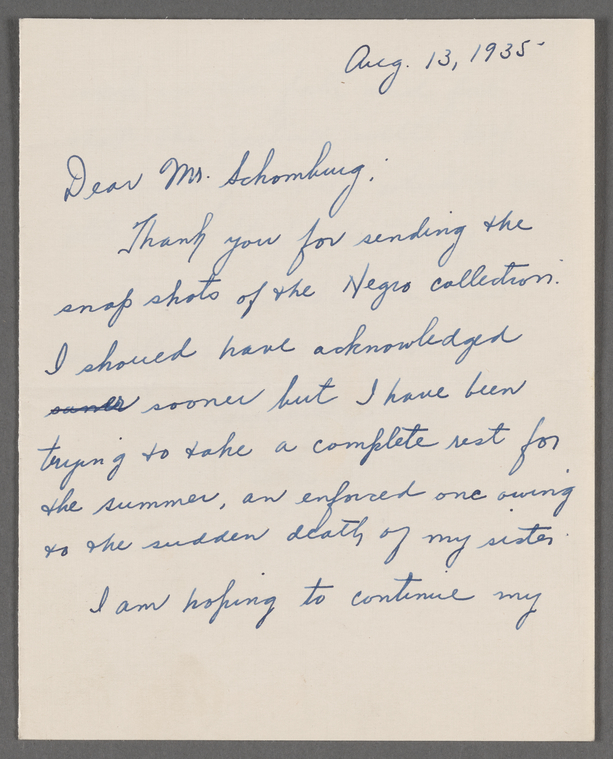 Aug. 13, 1935
Dear Mr. Schomburg;
Thank you for sending the
snap shots of the Negro collection.
I should have acknowledged
sooner but I have been
trying to take a complete rest for
the summer, an enforced one owing
to the sudden death of my sister.
I am hoping to continue my